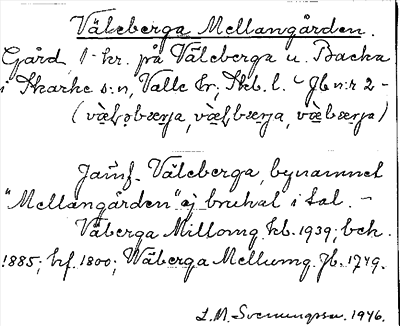 Väleberga Mellangården.
Gård, 1 kr. på Väleberga u. Backa
i Skarke s:n, Valle hr; Skb. l. - Jb n:r 2 -
Jämf. Väleberga, bynamnet
"Mellangården" ej brukat i tal. -
Väberga Millomg. kb. 1939; bek.
1885; hf. 1800; Wäberga Mellumg. Jb. 1749.
L.M. Svenungsson. 1946.